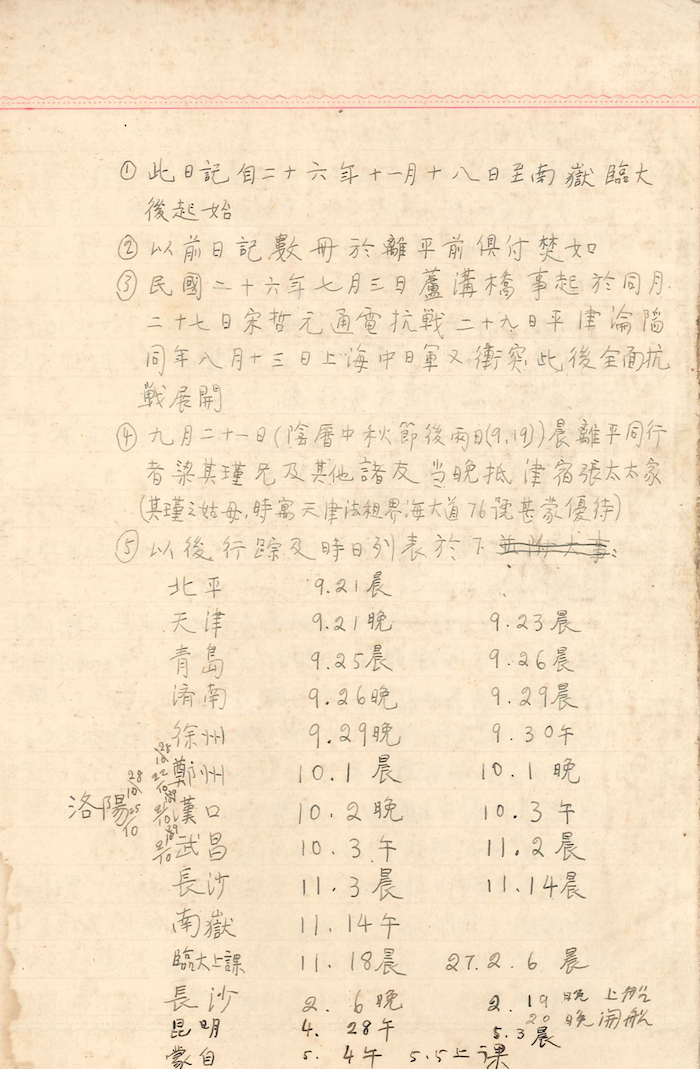 ① 此日記自二十六年十一月十八日至南嶽臨大
後起始
② 以前日記數冊於離平前俱付焚如
③ 民國二十六年七月三日蘆溝橋事起於同月
二十七日宋哲元通電抗戰二十九日平津淪陷
同年八月十三日上海中日軍又衝突此後全面抗
戰展開
④ 九月二十一日(陰曆中秋節後兩日(9.19))晨離平同行
者梁其瑾兄及其他諸友當晚抵津宿張太太家
(其瑾之姑母,時寓天津法租界海大道76號甚蒙優待)
⑤ 以後行踪及時日列表於下
北平 9.21晨
天津 9.21晚 9.23晨
青島 9.25晨 9.26晨
濟南 9.26晚 9.29晨
徐州 9.29晚 9.30午
鄭州 10.1晨 10.1晚
洛陽
漢口 10.2晚 10.3午
武昌 10.3午 11.2晨
長沙 11.3晨 11.14晨
南嶽 11.14午
臨大上課 11.18晨 27.2.6晨
長沙 2.6晚 2.19晚上船
20晚開船
昆明 4.28午 5.3晨
蒙自 5.4午 5.5上課